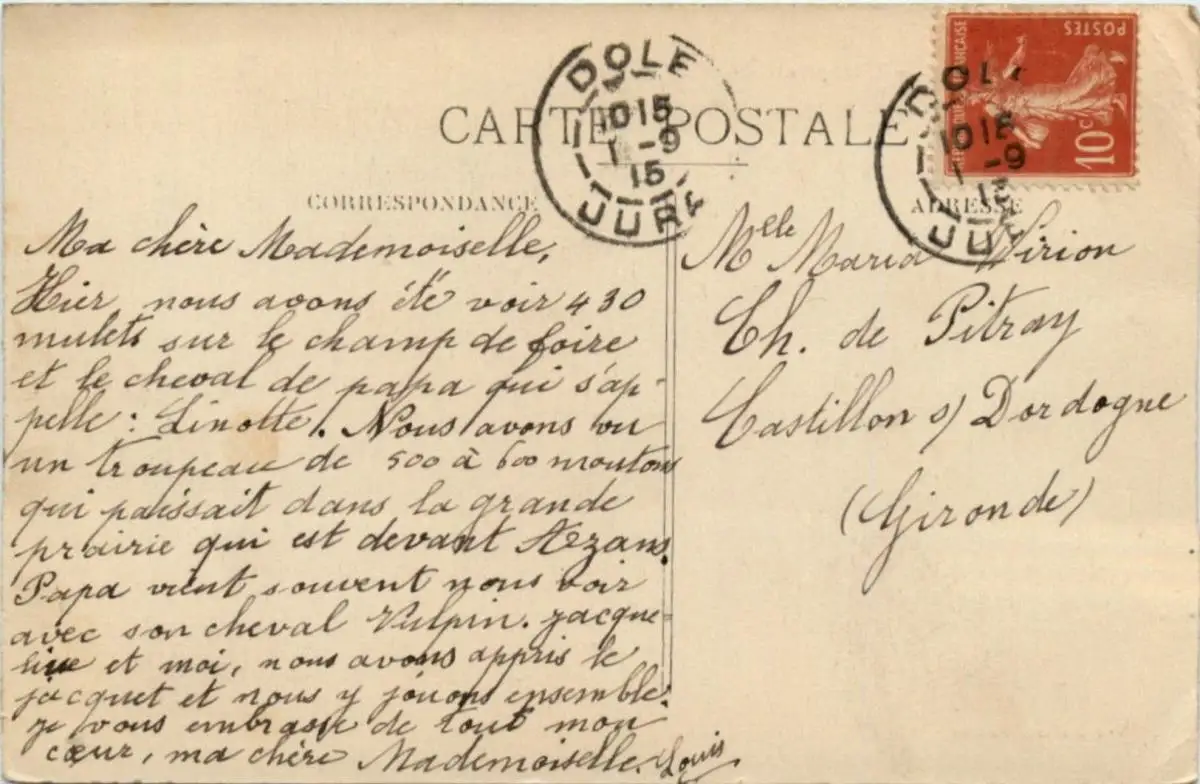 CARTE POSTALE
CORRESPONDANCE
Ma chère Mademoiselle,
Hier, nous avons été voir 430
mulets sur le champ de foire
et le cheval de papa qui s'ap-
pelle : Linotte. Nous avons vu
un troupeau de 500 à 600 moutons
qui paissait dans la grande
prairie qui est devant Azans.
Papa vient souvent nous voir
avec son cheval Vulpin. Jacque-
line et moi, nous avons appris le
jacquet et nous y jouons ensemble.
Je vous embrasse de tout mon
cœur, ma chère Mademoiselle. Louis
ADRESSE
Mlle Maria Virion
Ch. de Pitray
Castillon s/ Dordogne
(Gironde)
DOLE
1015
1-9
15
JURA
DOL
1015
1-9
15
JU
POSTES
REPUBLIQUE FRANÇAISE
10c